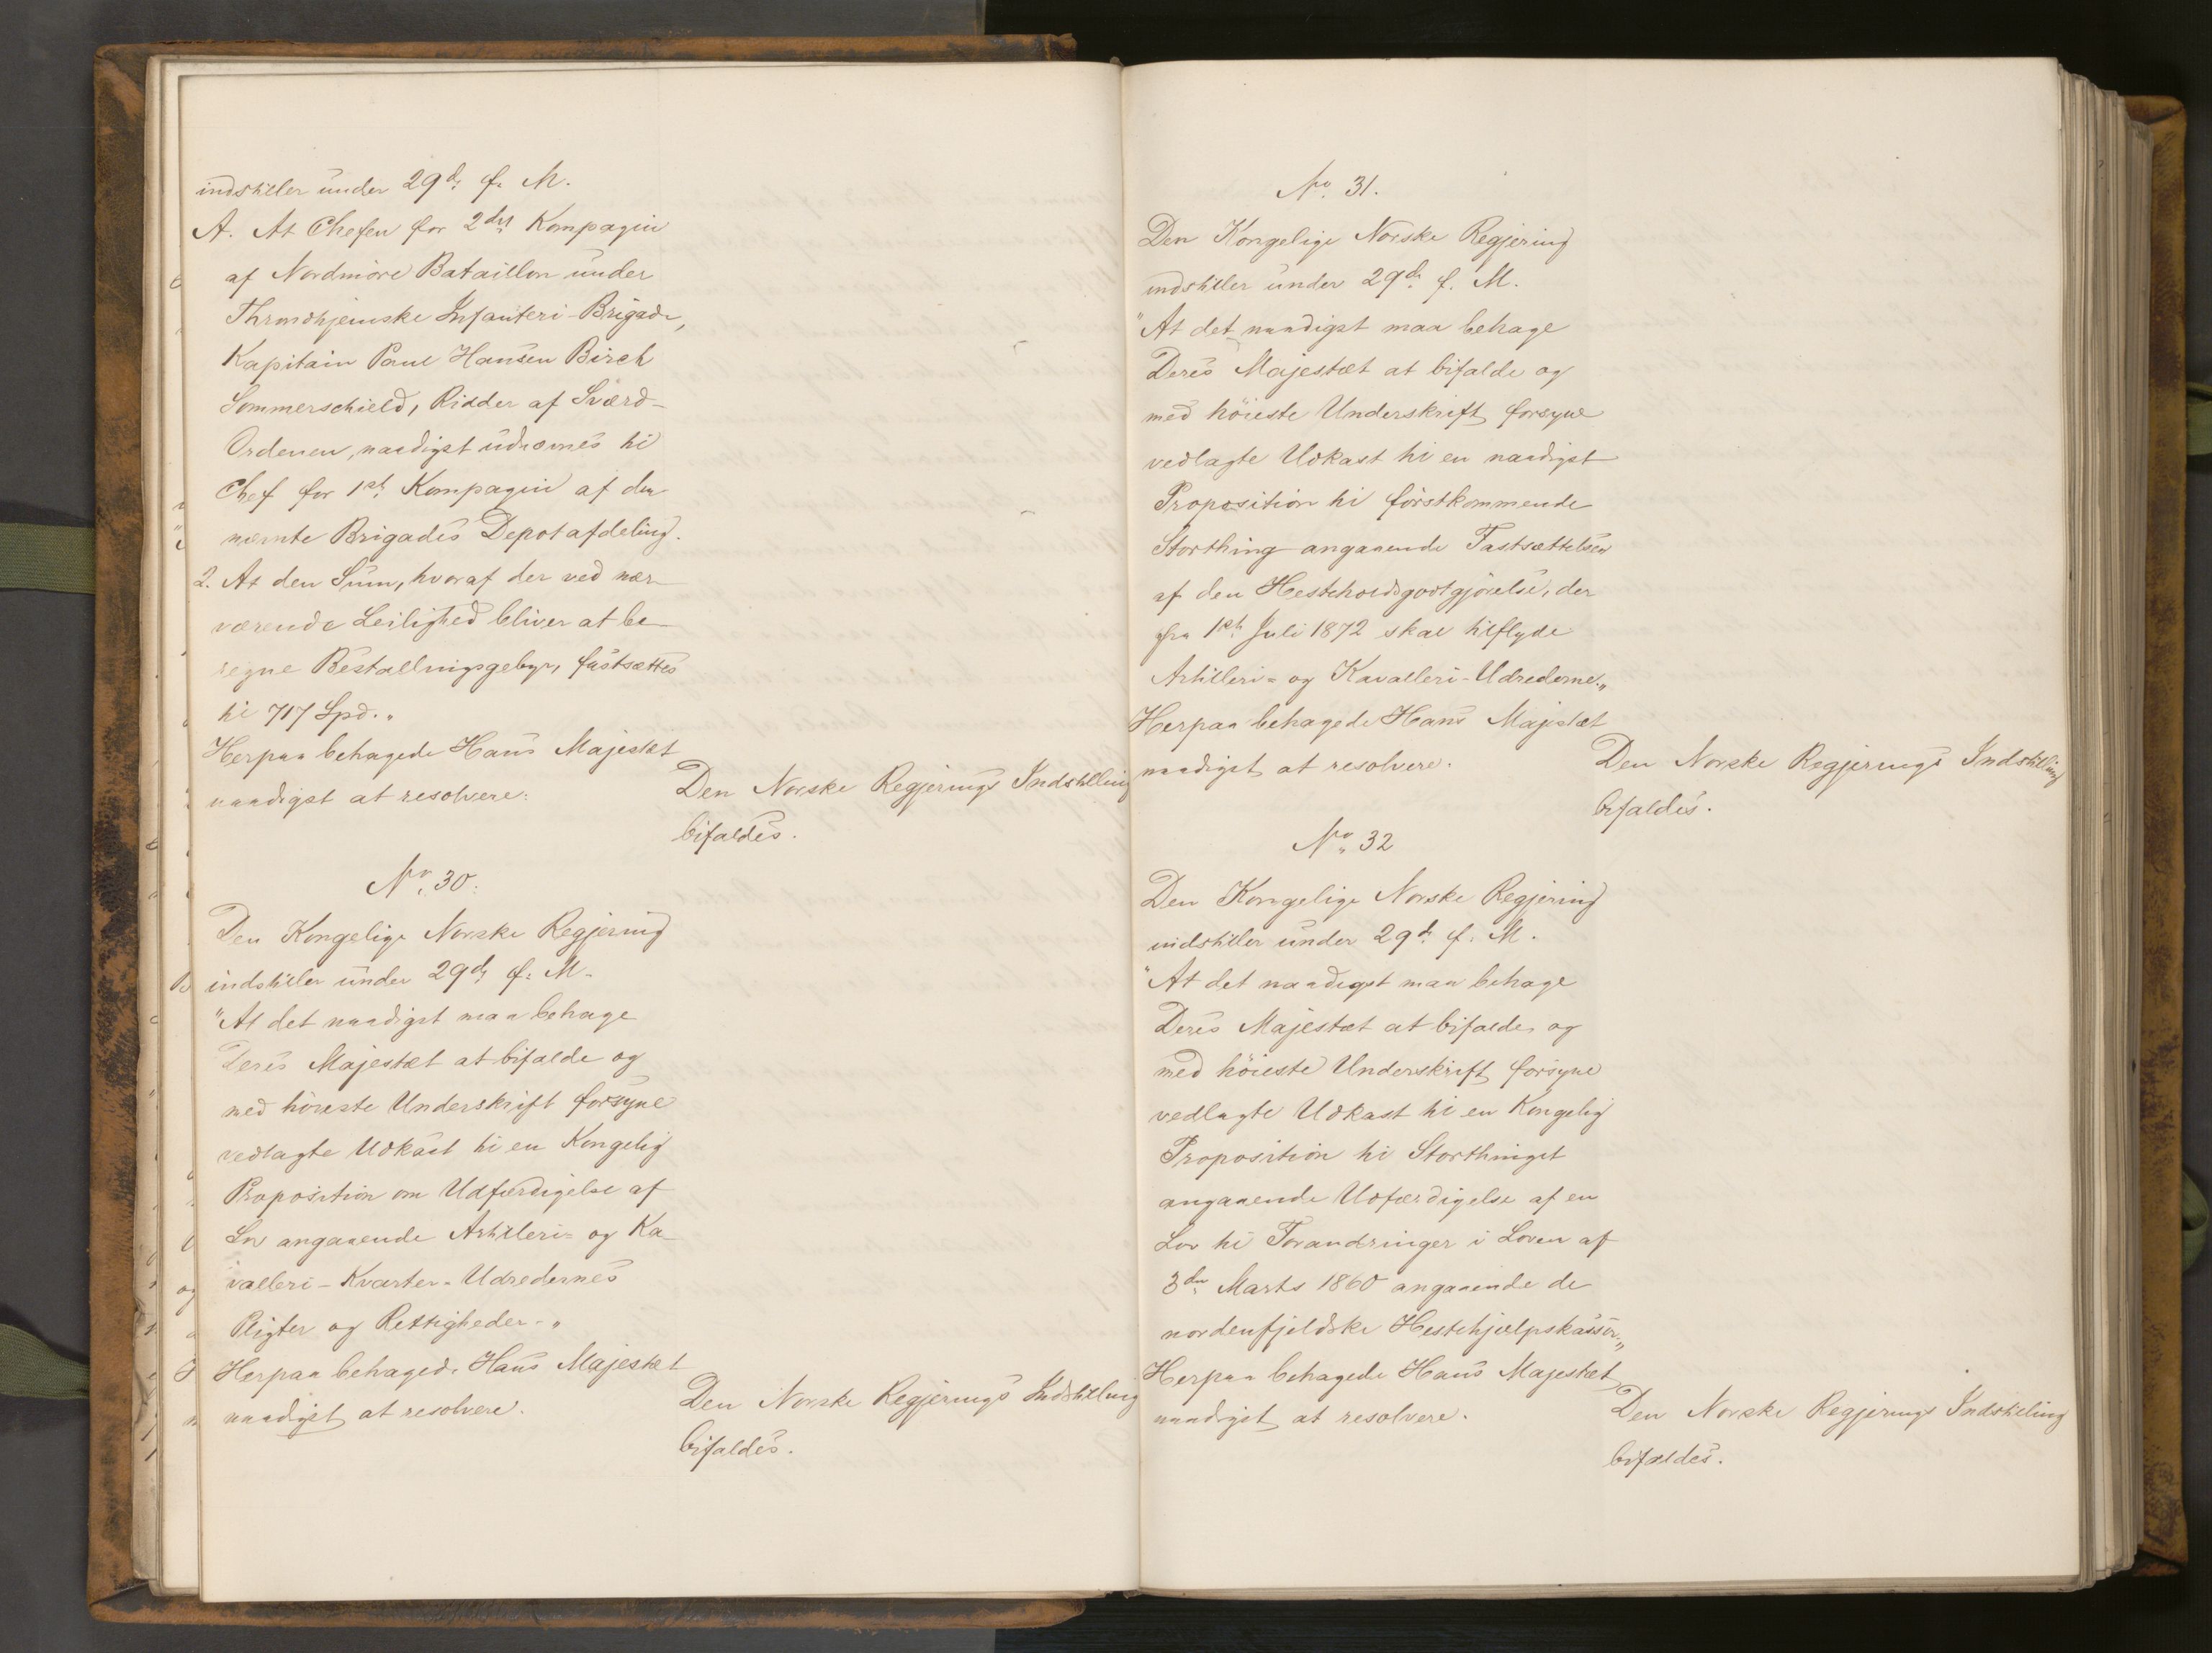 indstiller under 29de f. M.
A. At Chefen for 2det Kompagni
af Nordmöre Bataillon under
Throndhjemske Infanteri-Brigade,
Kapitain Paul Hansen Birch
Sommerschield, Ridder af Sværd-
Ordenen, naadigst udnævnes til
Chef for 1ste Kompagni af den
nævnte Brigades Depotafdeling.
2. At den Sum, hvoraf der ved nær-
værende Leilighed bliver at be-
regne Bestallningsgebyr, fastsættes
til 717 Spd."
Herpaa behagede Hans Majestæt
naadigst at resolvere:
Den Norske Regjerings Indstilling
bifaldes.
No. 30.
Den Kongelige Norske Regjering
indstiller under 29de f. M.
"At det naadigst maa behage
Deres Majestæt at bifalde og
med höieste Underskrift forsyne
vedlagte Udkast til en Kongelig
Proposition om Udfærdigelse af
Lov angaaende Artilleri- og Ka-
valleri-Kvarter-Udredernes
Pligter og Rettigheder."
Herpaa behagede Hans Majestæt
naadigst at resolvere.
Den Norske Regjerings Indstilling
bifaldes.
No. 31.
Den Kongelige Norske Regjering
indstiller under 29de f. M.
"At det naadigst maa behage
Deres Majestæt at bifalde og
med höieste Underskrift forsyne
vedlagte Udkast til en naadigst
Proposition til förstkommende
Storthing angaaende Fastsættelsen
af den Hesteholdsgodtgjörelse, der
fra 1ste Juli 1872 skal tilflyde
Artilleri- og Kavalleri-Udrederne."
Herpaa behagede Hans Majestæt
naadigst at resolvere.
Den Norske Regjerings Indstilling
bifaldes.
No. 32
Den Kongelige Norske Regjering
indstiller under 29de f. M.
"At det naadigst maa behage
Deres Majestæt at bifalde og
med höieste Underskrift forsyne
vedlagte Udkast til en Kongelig
Proposition til Storthinget
angaaende Udfærdigelse af en
Lov til Forandringer i Loven af
3die Marts 1860 angaaende de
nordenfjeldske Hestehjælpskasser."
Herpaa behagede Hans Majestæt
naadigst at resolvere.
Den Norske Regjerings Indstilling
bifaldes.